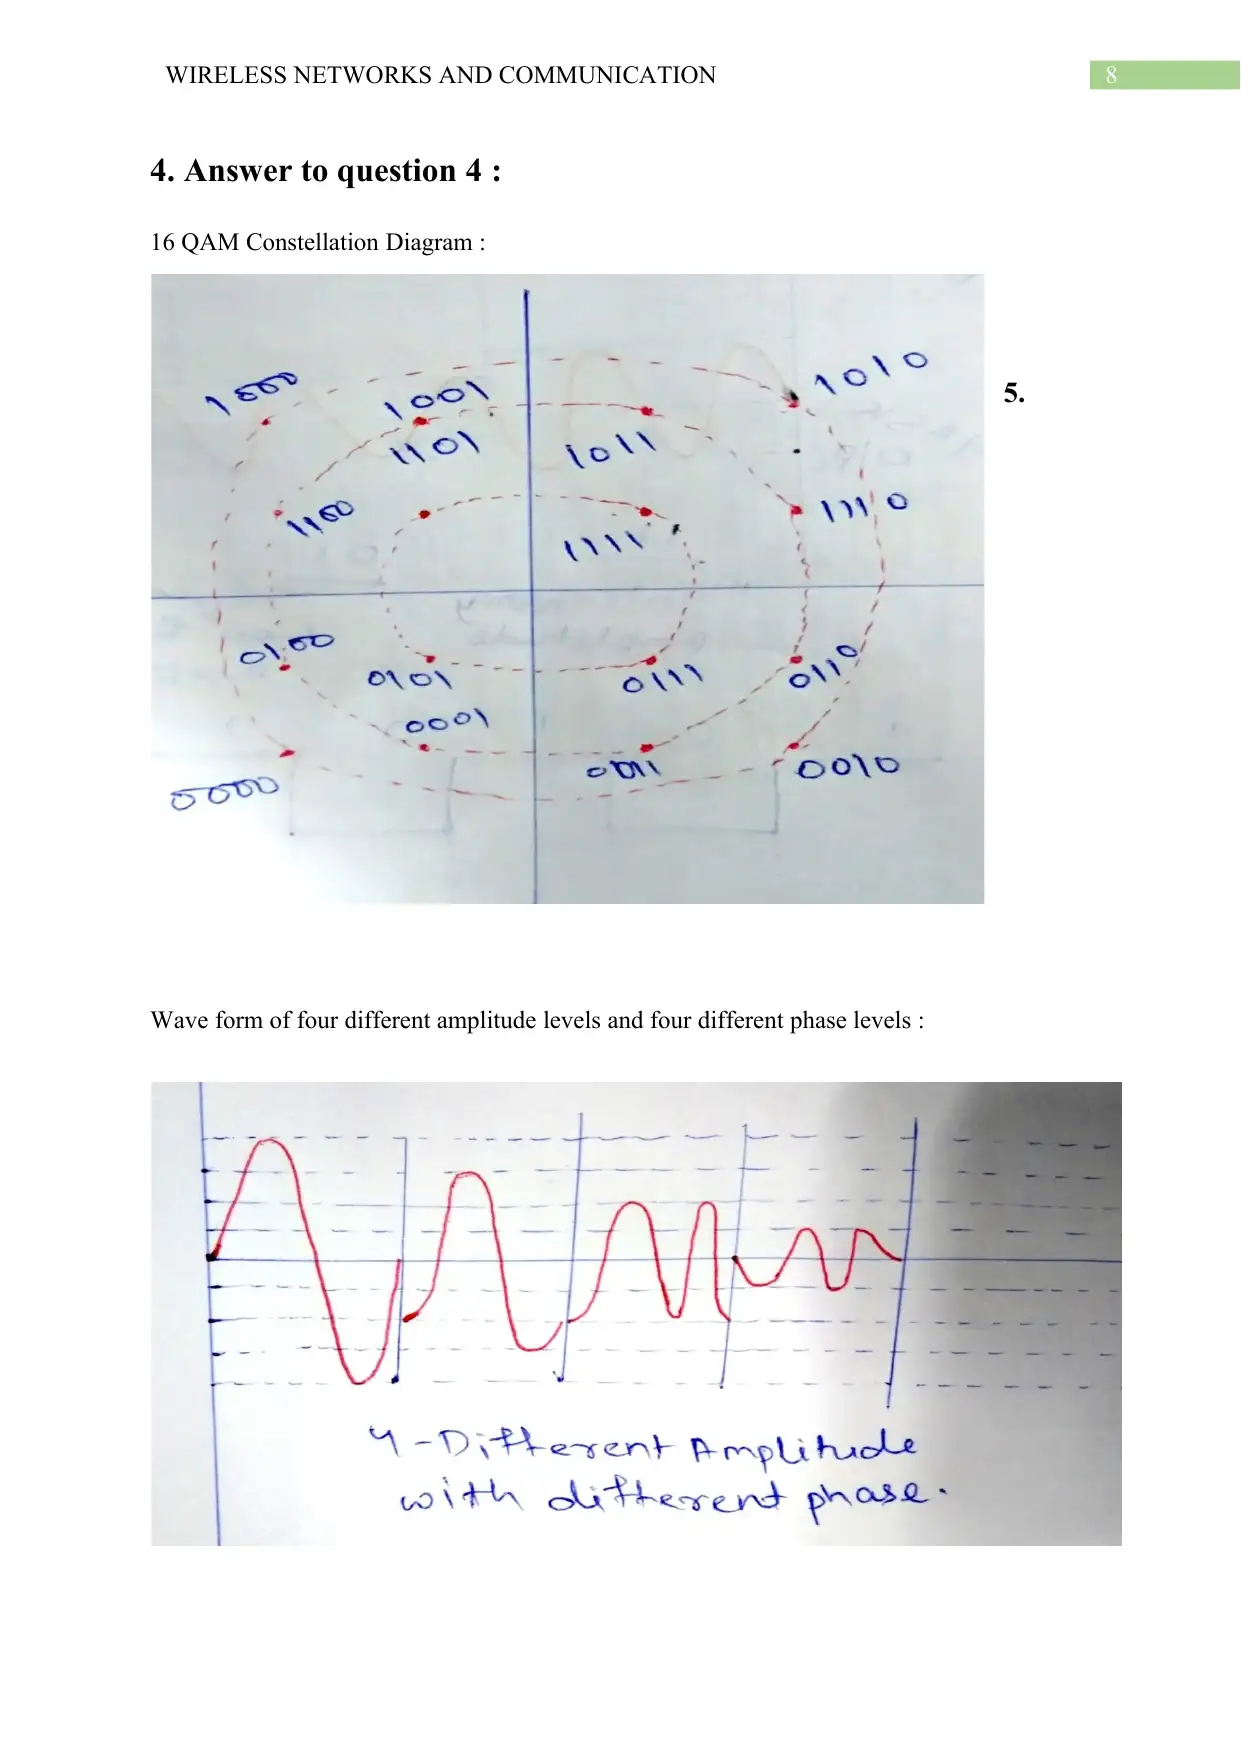 WIRELESS NETWORKS AND COMMUNICATION 8
4. Answer to question 4 :
16 QAM Constellation Diagram :
1000 1001 1010
5.
1101 1011
1100 1111 1110
0100 0101 0111 0110
0001
0000 0011 0010
Wave form of four different amplitude levels and four different phase levels :
4-Different Amplitude
with different phase.